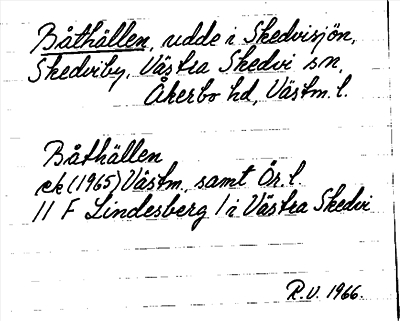 Båthällen, udde i Skedvisjön,
Skedviby, Västra Skedvi sn,
Åkerbo hd, Västm. l.
Båthällen
ek (1965) Västm. samt Ör. l.
11 F Lindesberg / i Västra Skedvi
R.V. 1966.